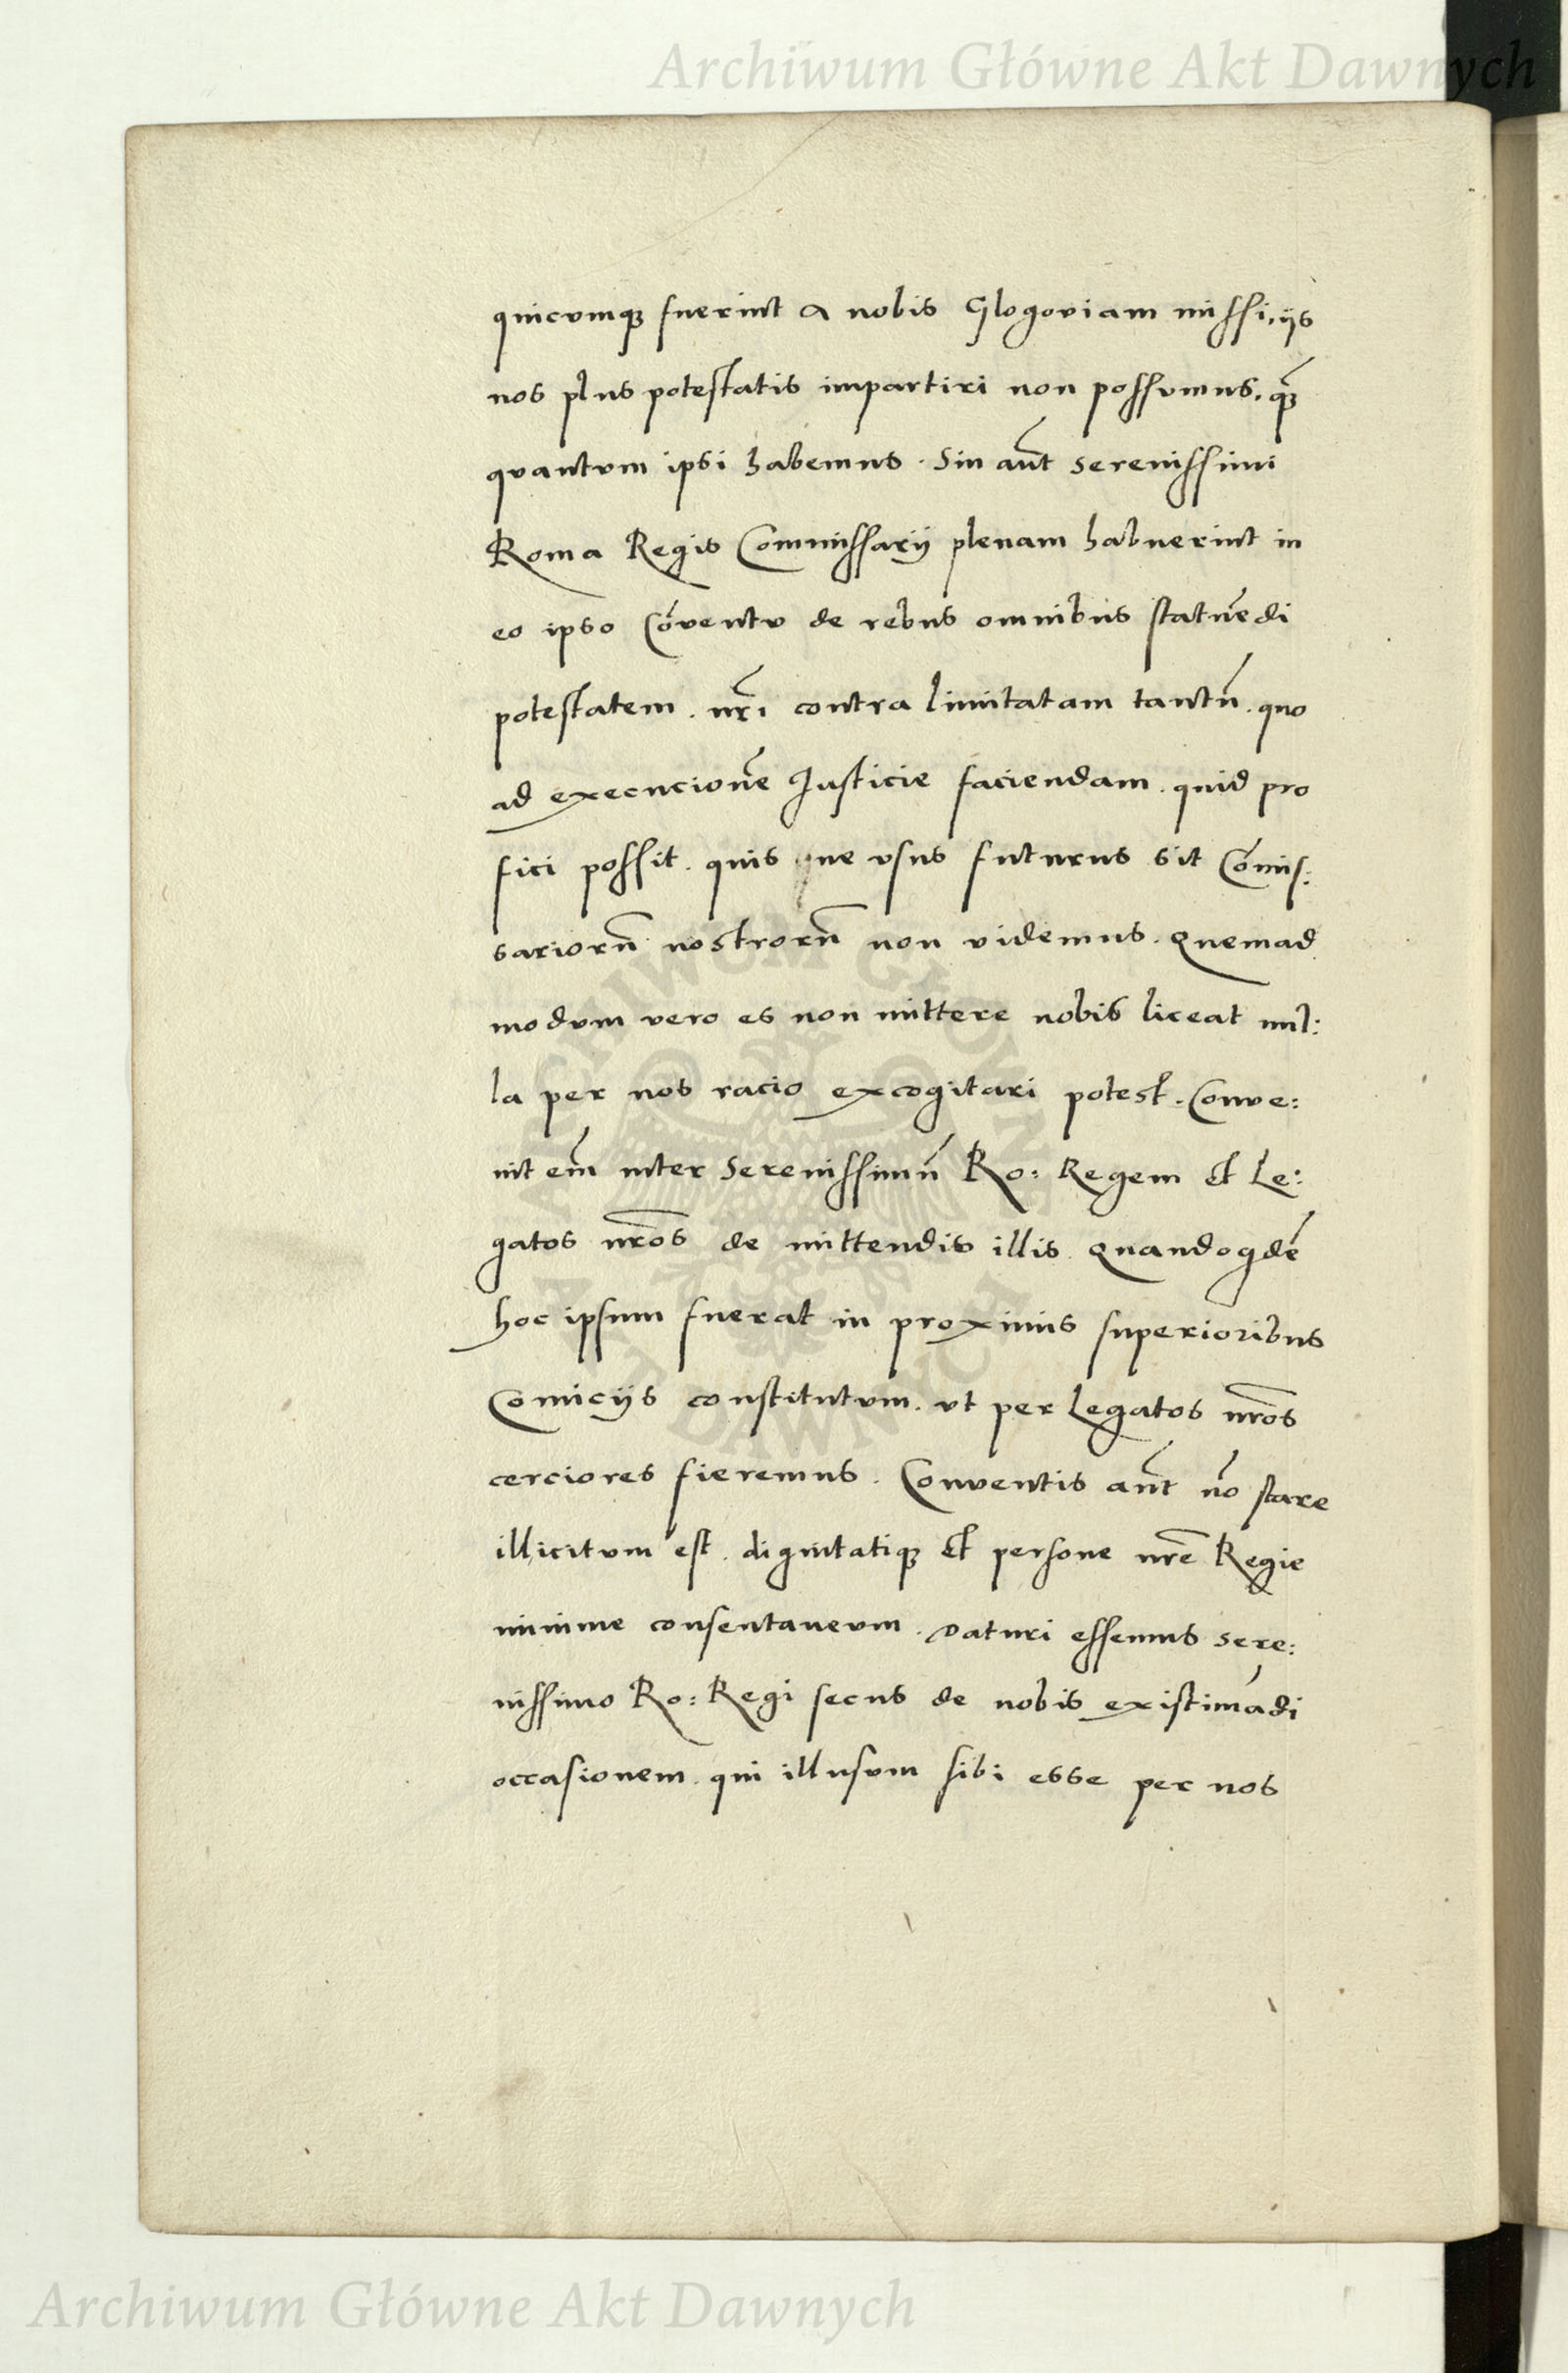 Archiwum Główne Akt Dawnych
quicumqꝫ fuerint a nobis Glogoviam missi, ijs
nos plus potestatis impartiri non possumus, qȝ̃
quantum ipsi habemus. Sin aut̃ serenissimi
Roma Regis Commissarij plenam habuerint in
eo ipso Cōventu de rebus omnibus statuēdi
potestatem. nr̃i contra limitatam tantũ. quo
ad execucionē Justicie faciendam. quid pro
fici possit. quis ne usus futurus sit Cōmis:
sariorũ nostrorũ non videmus. Quemad
modum vero es non mittere nobis liceat nul:
la per nos racio excogitari potest. Conve:
nit em̃ inter Serenissimũ Ro: Regem et Le:
gatos nr̃os de mittendis illis. Quandoqdẽ
hoc ipsum fuerat in proximis superioribus
Comicijs constitutum. ut per Legatos nr̃os
cerciores fieremus. Conventis aut̃ nõ stare
illicitum est. dignitatiqꝫ et persone nr̃e Regie
minime consentaneum. Daturi essemus Sere:
nissimo Ro: Regi secus de nobis existimādi
occasionem. qui illusum sibi esse per nos
Archiwum Główne Akt Dawnych